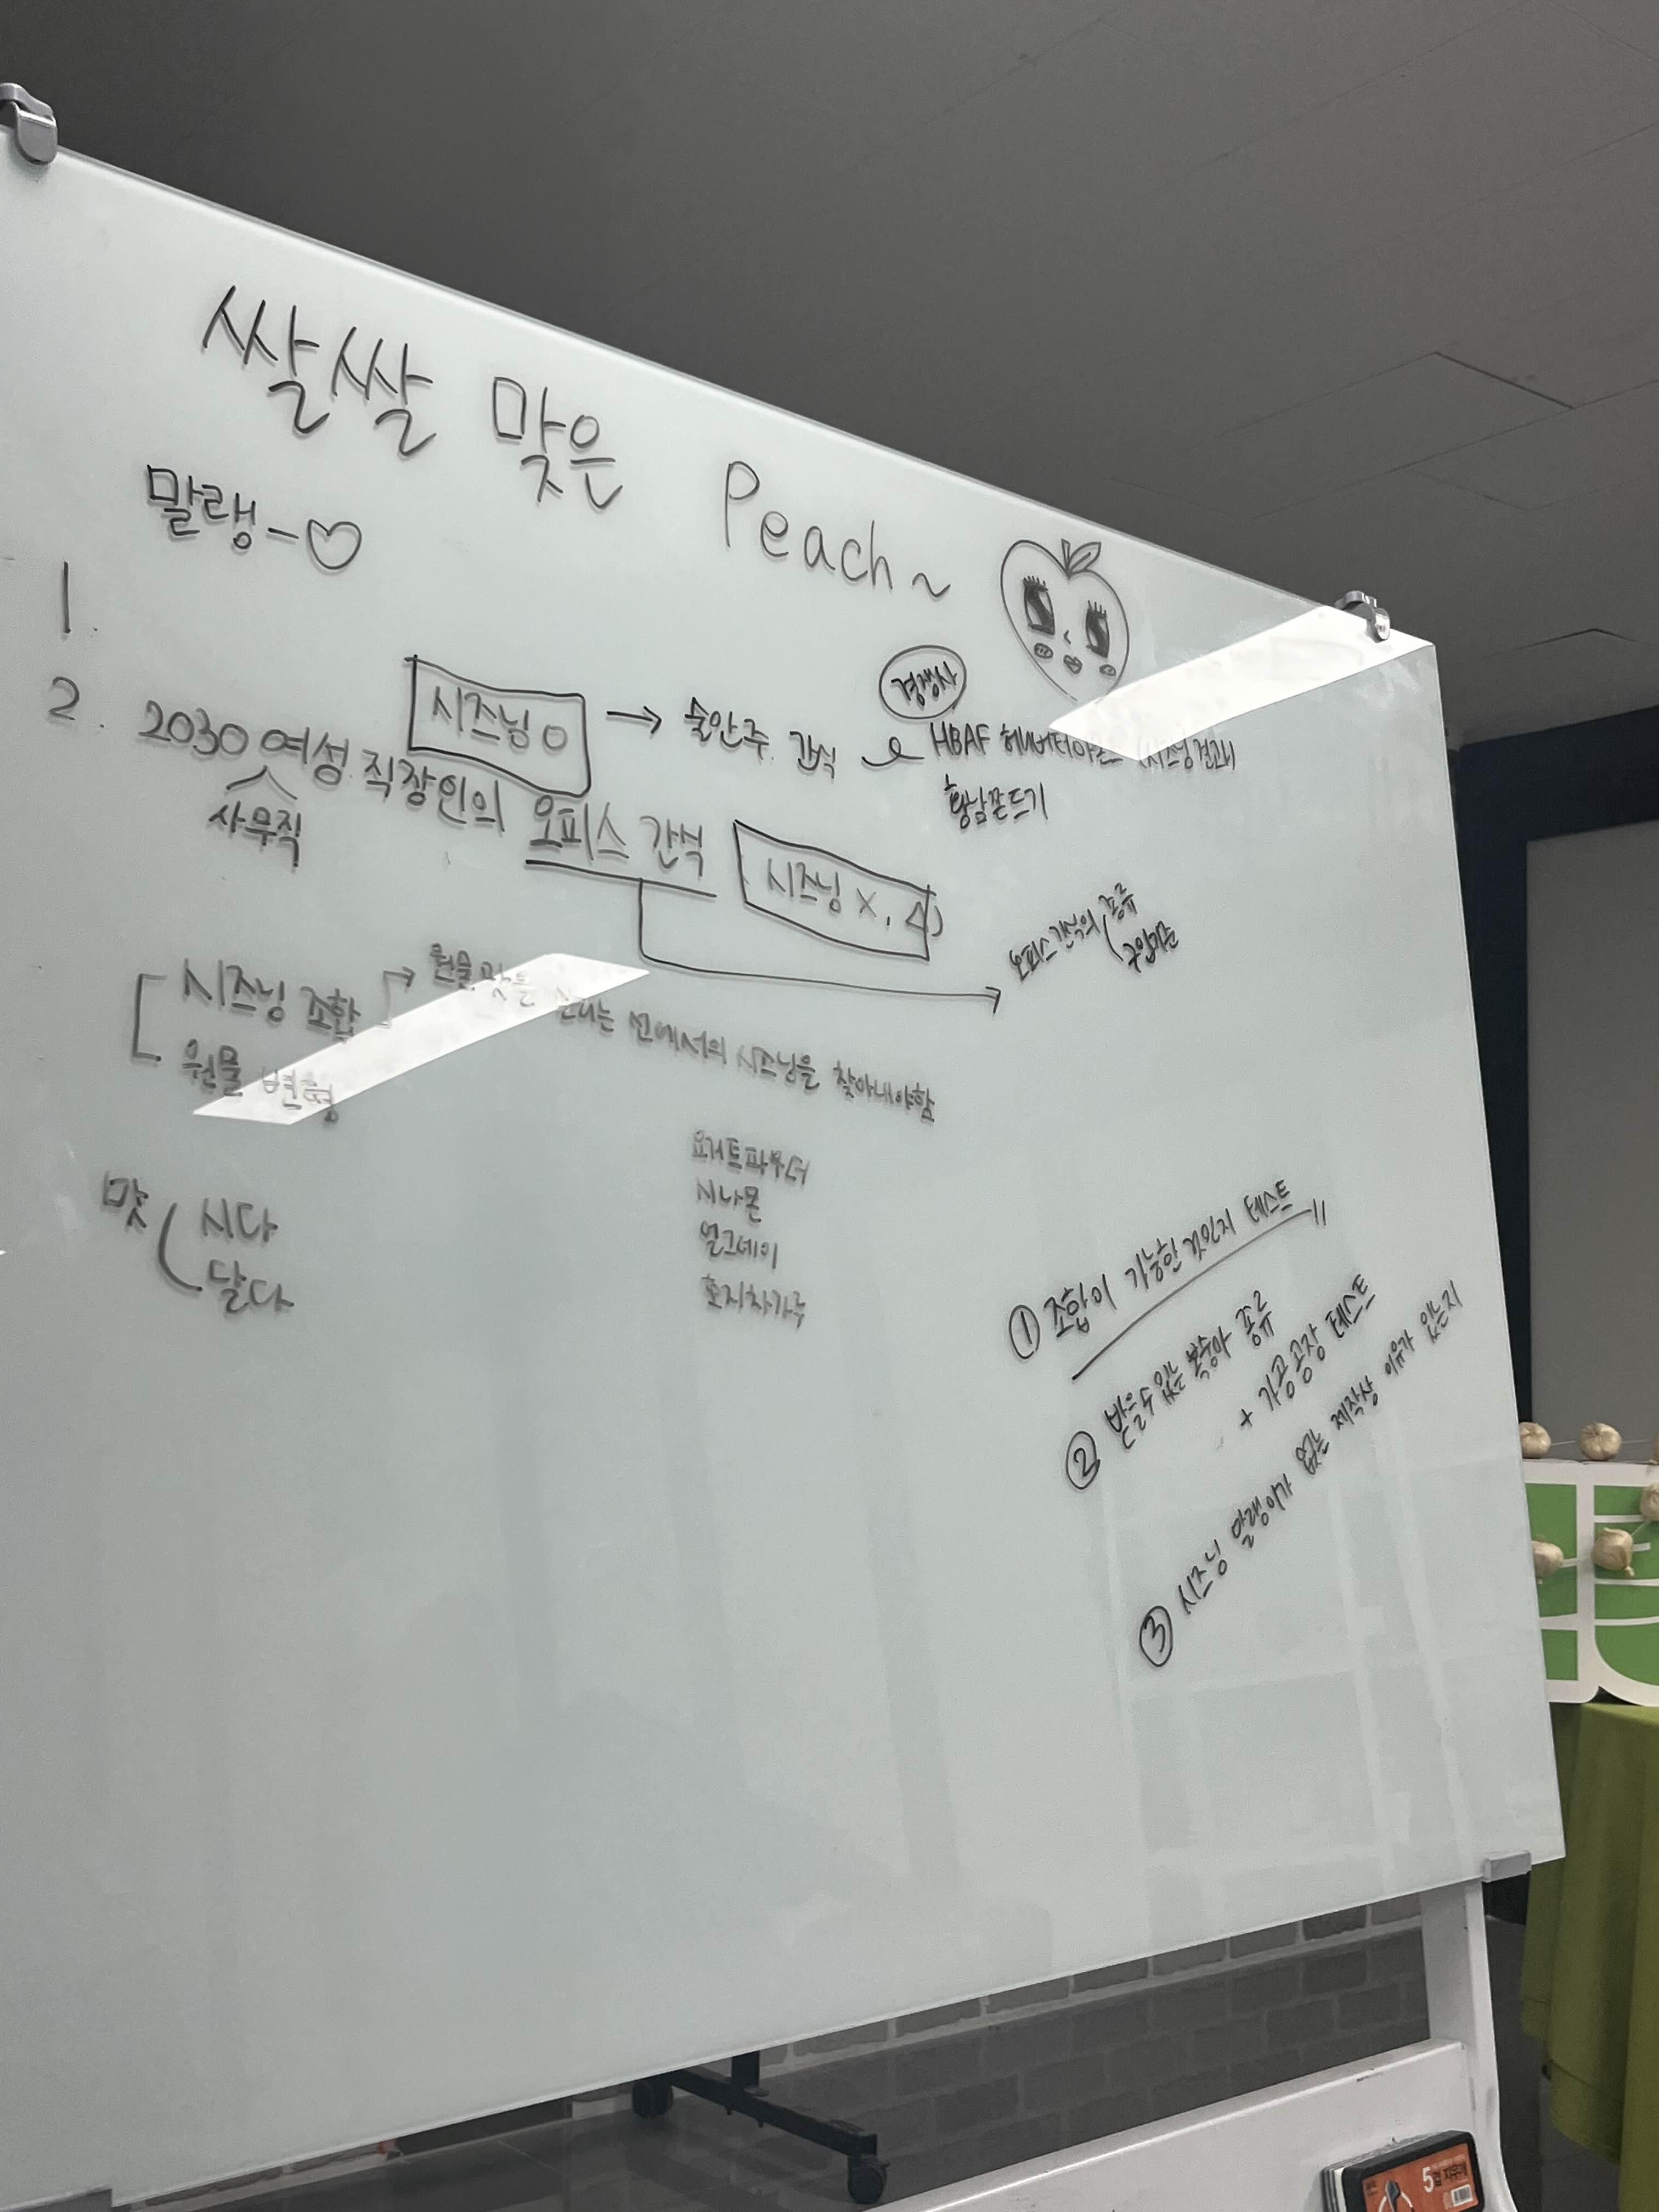 쌀쌀 맞은 Peach~
말랭-♡
1.
2. 2030 여성 직장인의 오피스 간식
사무직
시즈닝 O → 술안주, 간식
경쟁사
HBAF 허니버터아몬드
황남쫀드기
시즈닝 X, △
오피스 간식의 종류
구입기준
시즈닝 조합
원물 변형
원물 맛을 선에서의 시즈닝을 찾아내야함
맛 시다
달다
요거트파우더
시나몬
얼그레이
호지차가루
① 조합이 가능한 것인지 테스트
② 받을 수 있는 복숭아 종류
+ 가공공장 테스트
③ 시즈닝 말랭이가 없는 제작상 이유가 있는지
5겹 지우개